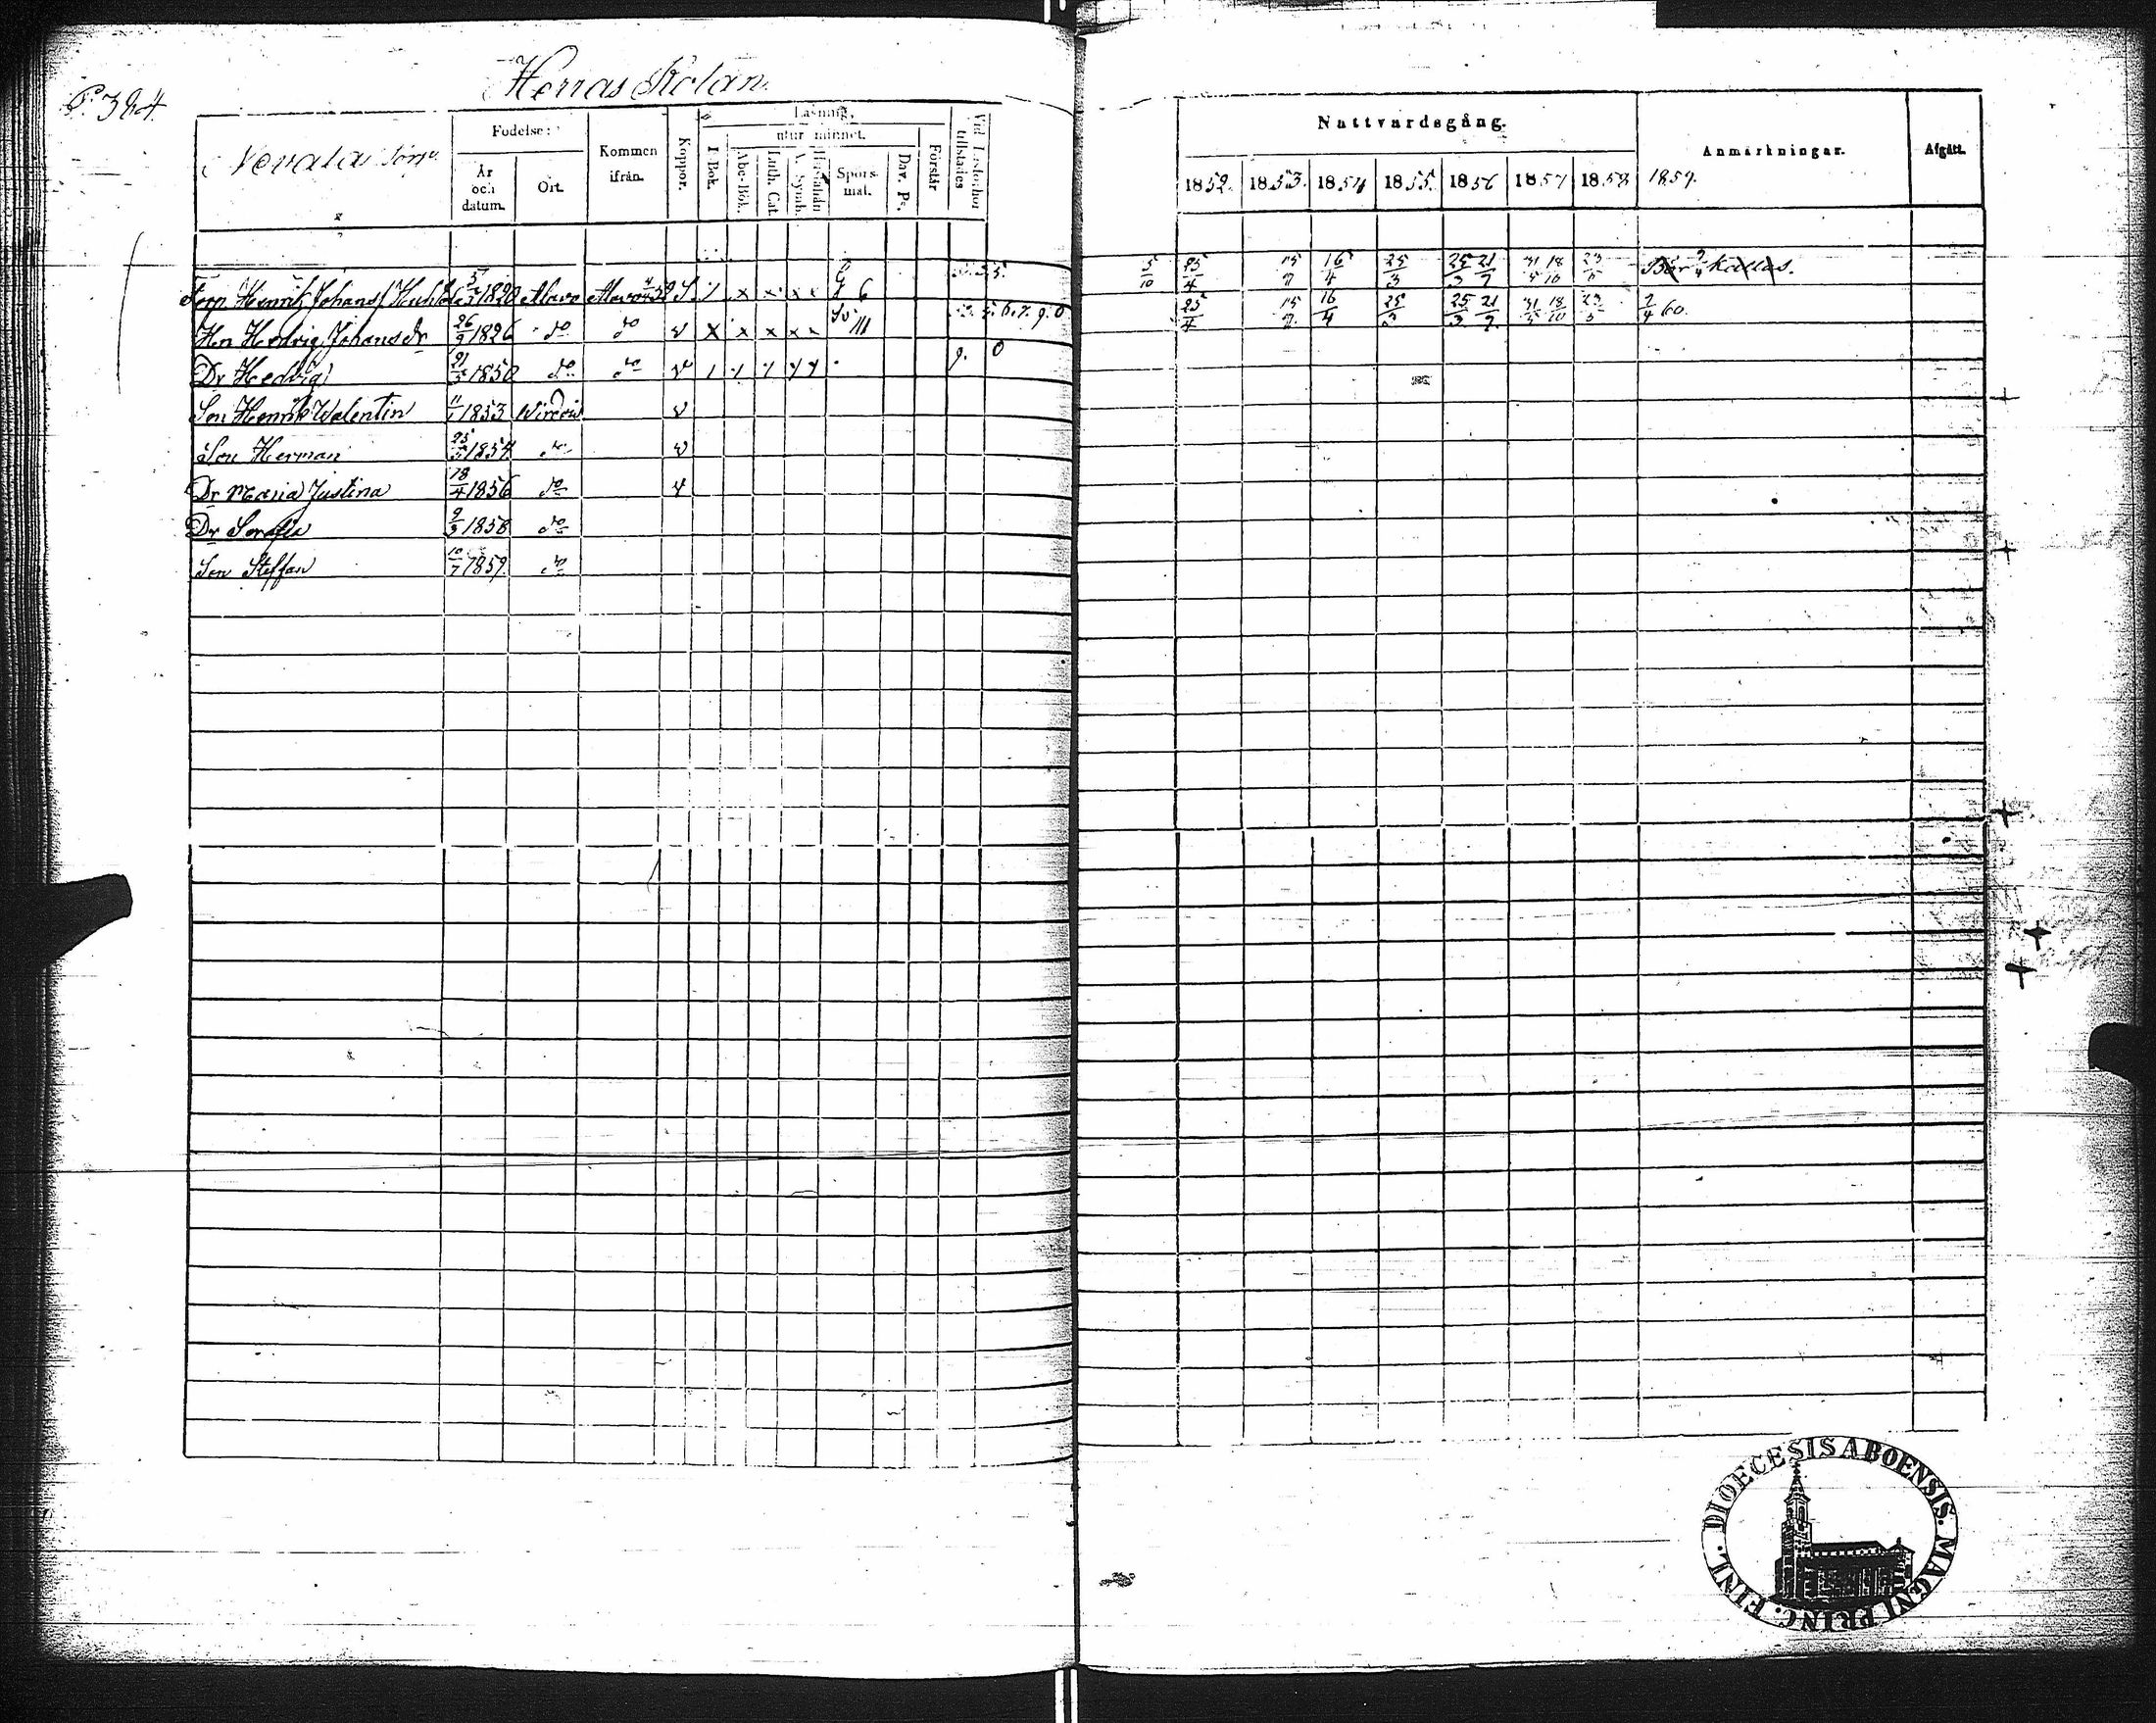 P. 384.
Herras Kolan.
Nevala Torp.
Födelse:
År och datum.
Ort.
Kommen ifrån.
Koppor.
Läsning,
utur minnet.
I Bok.
Abc-Bok.
Luth. Cat.
A. Symb.
Hustaflan
Spörs-mål.
Dav. Ps.
Förstår
Vid Läseförhör tillstädes
Nattvardsgång.
1852. 1853. 1854 1855. 1856 1857 1858 1859.
Anmärkningar.
Afgått.
Torp. Henrik Johansf 1820 Alavo Alavo
5/10 25/4 15/7 16/4 25/3 25/3 21/7 31/5 18/10 Bör kallas.
Hu Hedvig Johansdr 26/9 1826 do do v x x x x x
25/4 15/7 16/4 25/3 25/3 21/7 31/5 18/10 7/4 60.
Dr Hedvig 21/5 1850 do do v 9. 0
Son Henrik Walentin 11/1 1853 Wirdois v
Son Herman 25/5 1854 do v
Dr Maria Justina 18/4 1856 do v
Dr Serafia 9/3 1858 do
Son Steffan 10/7 1859. do
DIOECESIS ABOENSIS. MAGNI PRINC. FINL.